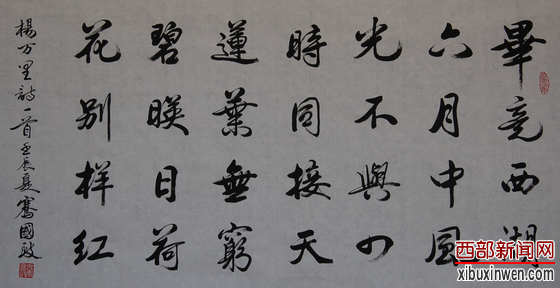 畢竟西湖
六月中風
光不與四
時同接天
蓮葉無窮
碧暎日荷
花别样红
楊万里詩一首壬辰夏騫國政
西部新闻网
xibuxinwen.com